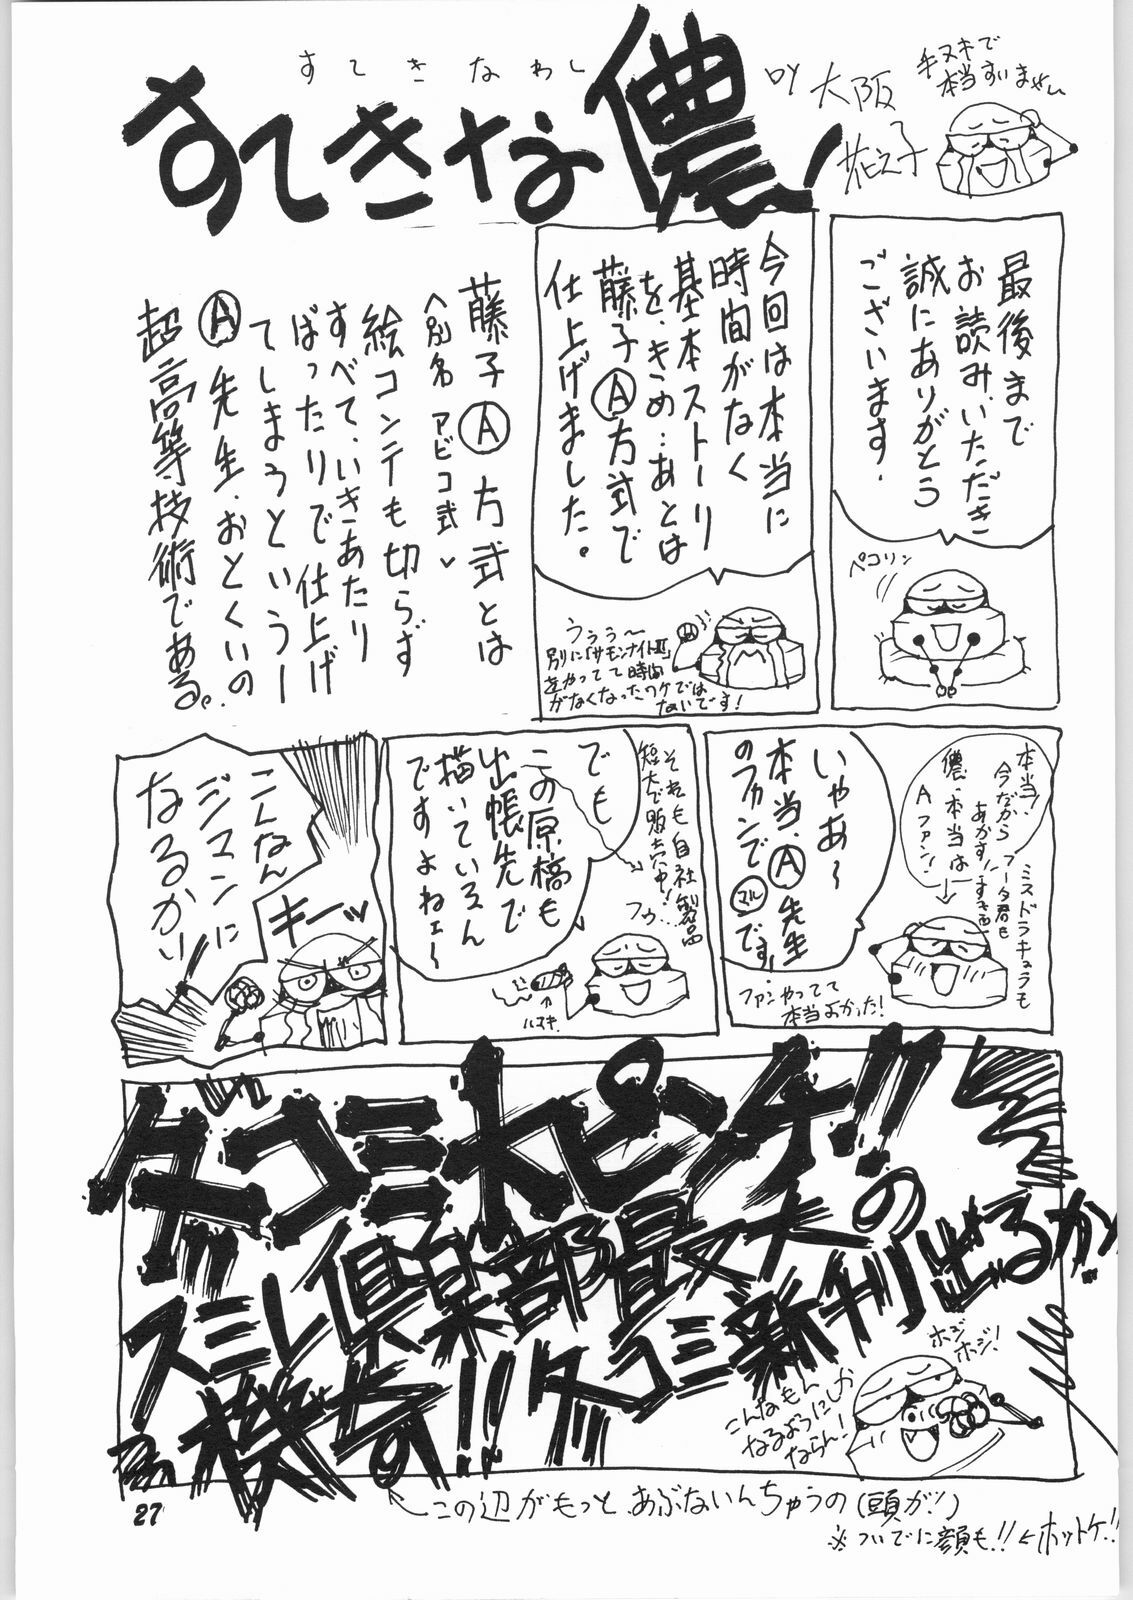 すてきなわし
すてきな儂!
by 大阪
花之子
手ヌキで
本当すいません
最後まで
お読みいただき
誠にありがとう
ございます.
ペコリン
今回は本当に
時間がなく
基本ストーリー
を、きめ…あとは
藤子Ⓐ方式で
仕上げました。
うぅぅ〜
別に「サモンナイトⅡ」
をやってて時間
がなくなったワケでは
ないです!
藤子Ⓐ方式とは
(別名アビコ式)
絵コンテも切らず
すべて、いきあたり
ばったりで仕上げ
てしまうというー
Ⓐ先生、おとくいの
超高等技術である。
本当、
今だから
あかす!
儂、本当は
Aファン!
ミス・ドラキュラも
フータ君も
いやあ〜
本当、Ⓐ先生
のファンで
マルです,
ファンやってて
本当よかった!
でも
この原稿も
出帳先で
描いているん
ですよねェ〜
それも自社製品
短大で販売中!
フゥ…
ハヌキ.
こんなん
ジマンに
なるかい
キーッ
ダコミ大ピンチ!!
スミレ倶楽部最大の
危機だ!!ダコミ新刊出るか!
ホジ
ホジ!
こんなもん
なるようにしか
ならん!
この辺がもっと、あぶないんちゅうの(頭が!)
※ついでに顔も!!←ホットケ!!
27